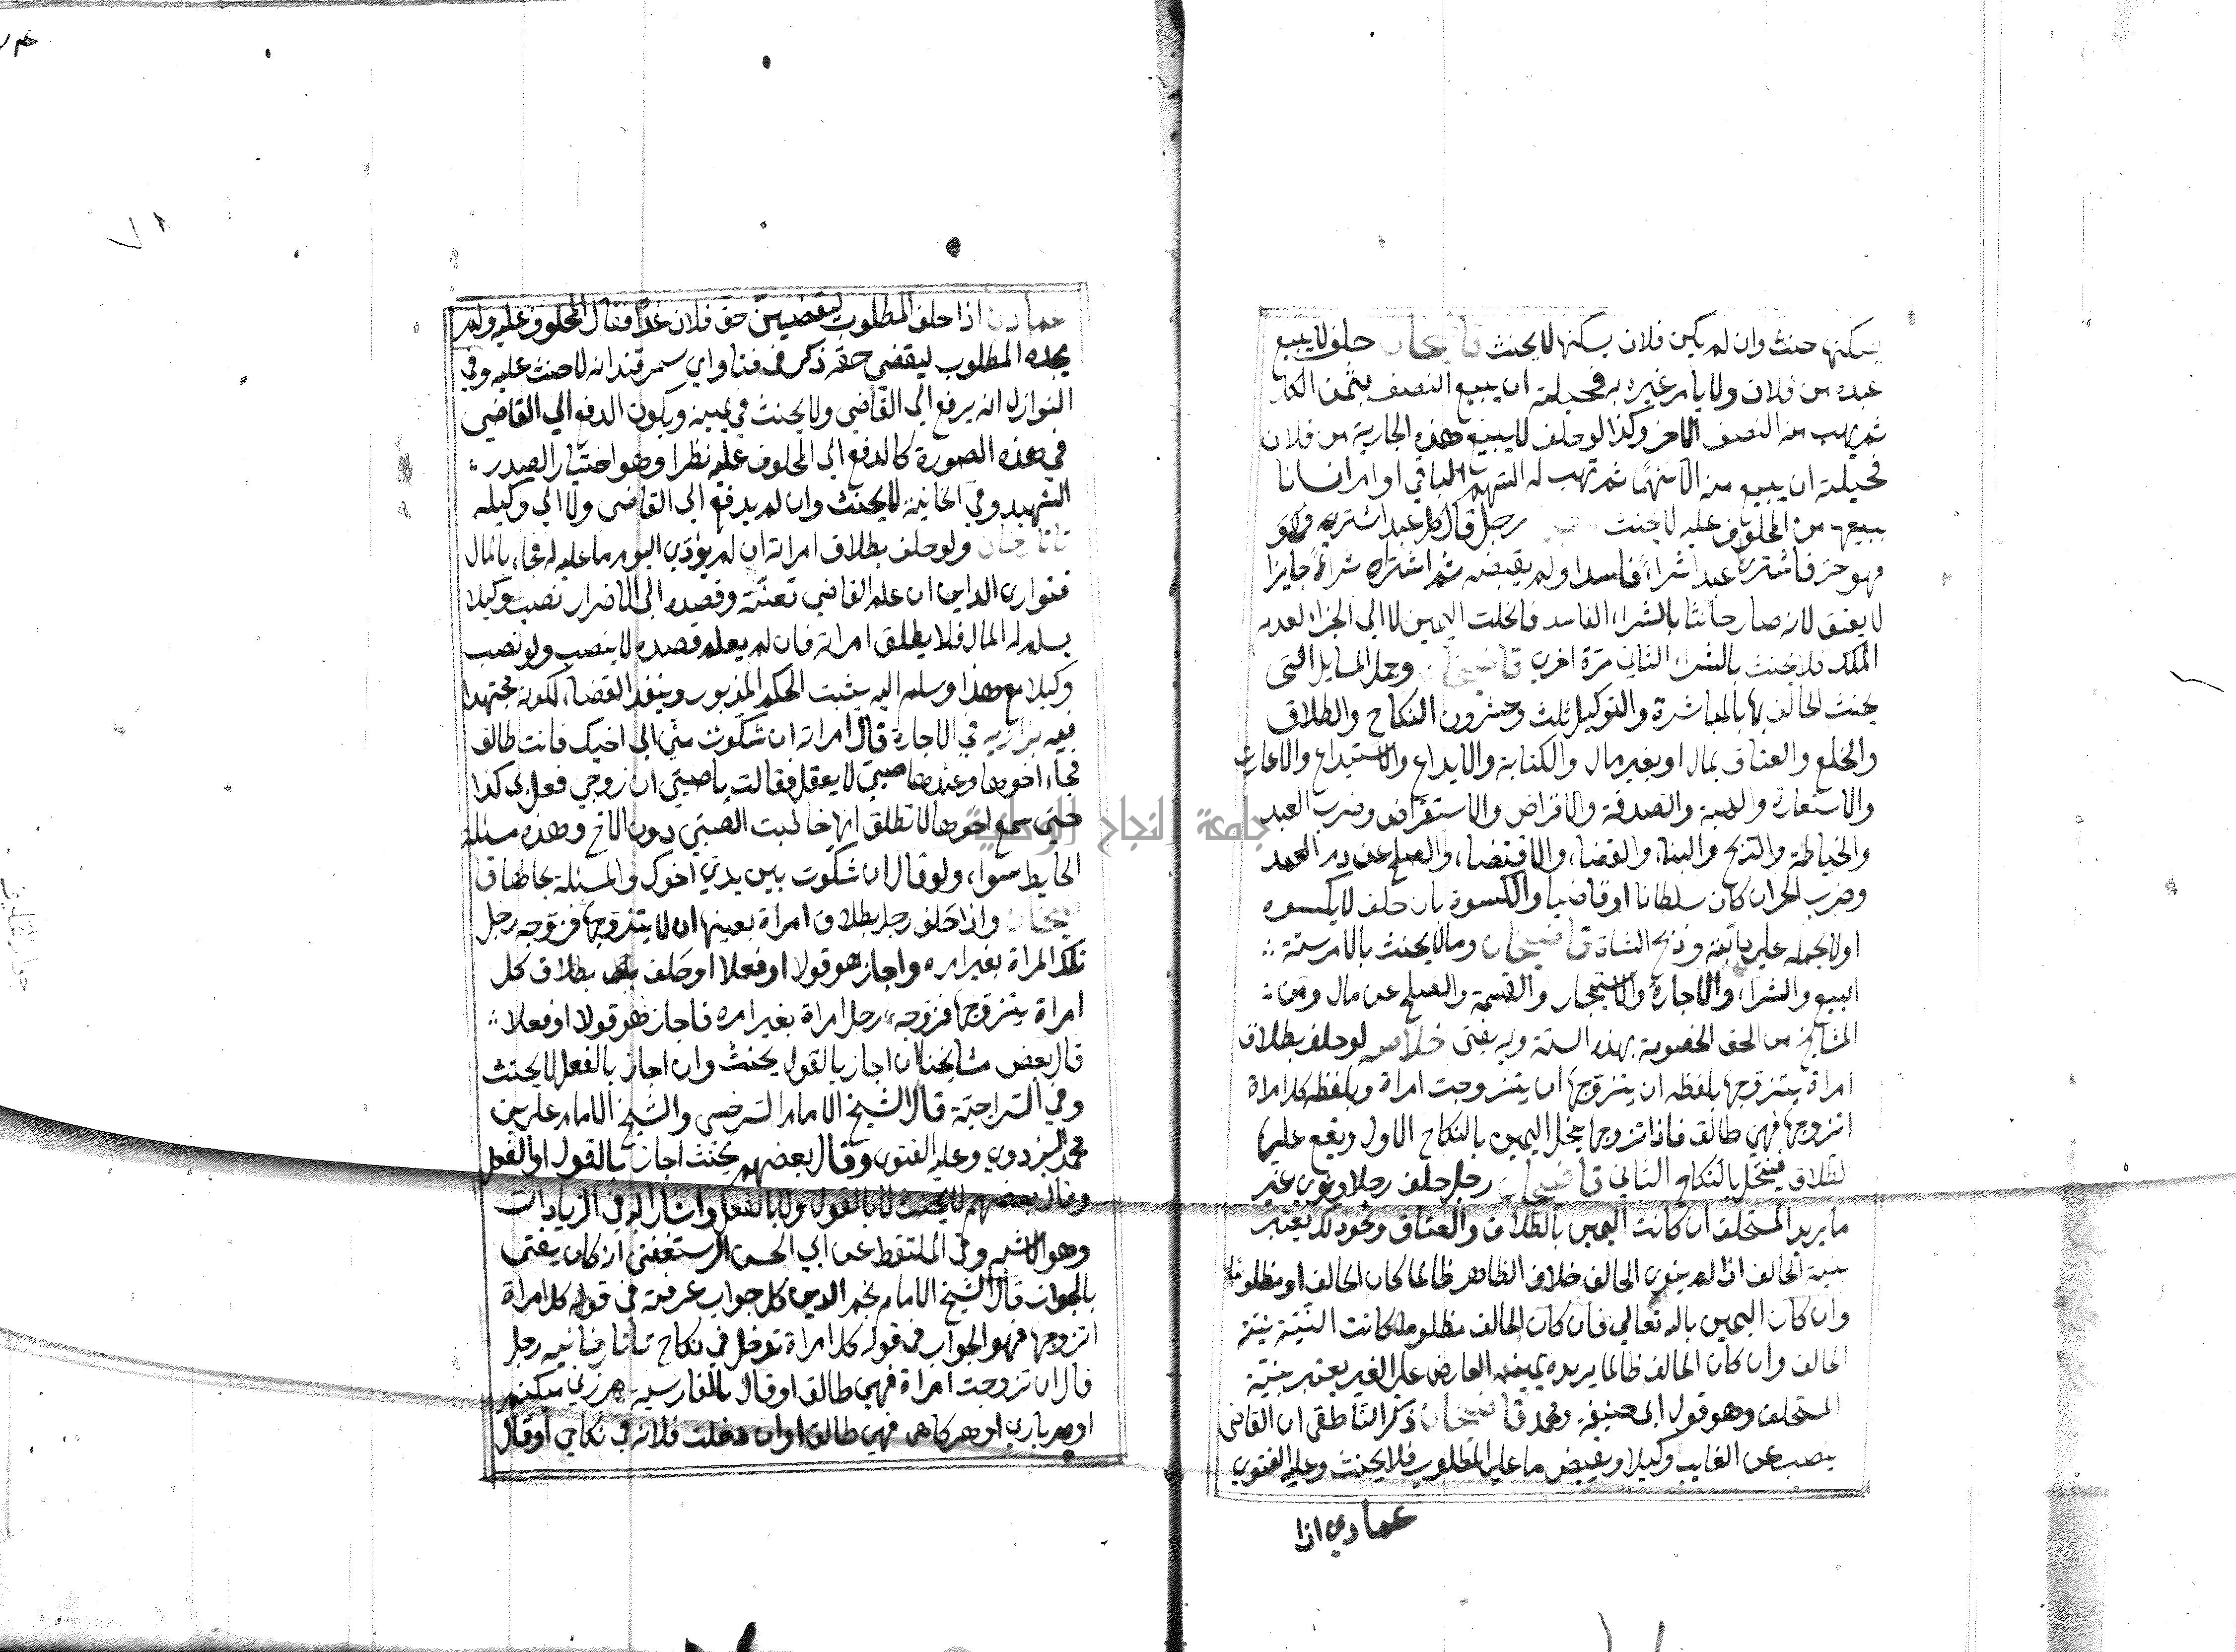 يسكنها حنث وان لم يكن فلان يسكنها لا يحنث قاضيخان حلف لا يبيع
عبده من فلان ولا يامر غيره به فحيلته ان يبيع النصف بثمن الكل
ثم يهب منه النصف الاخر وكذا لو حلف لا يبيع هذه الجارية من فلان
فحيلته ان يبيع منه الاسهما ثم يهب له السهم الباقي او امر انسانا
ببيعها من المحلوف عليه لا يحنث رجل قال كل عبد اشتريه
فهو حر فاشترى عبدا شراء فاسدا ولم يقبضه ثم اشتراه شراء جايزا
لا يعتق لانه صار حانثا بالشراء الفاسد فانحلت اليمين لا الى الجزاء لعدم
الملك فلا يحنث بالشراء الثاني مرة اخرى قاضيخان وجمل المسايل التى
يحنث الحالف بها بالمباشرة والتوكيل ثلث وعشرون النكاح والطلاق
والخلع والعتاق بمال او بغير مال والكتابة والايداع والاستيداع والاعارة
والاستعارة والهبة والصدقة والاقراض والاستقراض وضرب العبد
والخياطة والذبح والبناء والقضاء والاقتضاء والصلح عن دم العمد
وضرب الحر ان كان سلطانا او قاضيا والكسوة بان حلف لا يكسوه
او لا يحمله على دابته وذبح الشاة قاضيخان وما لا يحنث بالامر ستة
البيع والشراء والاجارة والاستيجار والقسمة والصلح عن مال ومن
المشايخ من الحق الخصومة بهذه الستة وبه يفتى خلاصه لو حلف بطلاق
امراة يتزوجها بلفظه ان يتزوجها ان يتزوجت امراة وبلفظه كل امراة
اتزوجها فهي طالق فاذا تزوجها ينحل اليمين بالنكاح الاول ويقع عليها
الطلاق فينحل بالنكاح الثاني قاضيخان رجل حلف رجلا ونوى غير
ما يريد المستحلف ان كانت اليمين بالطلاق والعتاق ونحو ذلك يعتبر
بنية الحالف اذا لم ينوى الحالف خلاف الظاهر ظالما كان الحالف او مظلوما
وان كان اليمين بالله تعالي فان كان الحالف مظلوما كانت النية نية
الحالف وان كان الحالف ظالما يريد بيمينه على الغير يعتبر بنية
المستحلف وهو قول ابى حنيفة ومحمد قاضيخان ذكر الناطفى ان القاضى
ينصب عن الغايب وكيلا ويقبض ما على المطلوب فلا يحنث وعليه الفتوى
عمادي اذا
عمادي اذا حلف المطلوب ليقضين حق فلان غدا فقال المحلوف عليه ولم
يجده المطلوب ليقضى حقه ذكر في فتاواي سمرقند انه لا حنث عليه وفي
النوازل انه يرفع الي القاضي ولا يحنث في يمينه ويكون الدفع الي القاضي
في هذه الصورة كالدفع الى المحلوف عليه نظرا وهو اختيار الصدر
الشهيد وفي الخانية لا يحنث وان لم يدفع الى القاضى ولا الى وكيله
تاتارخان ولو حلف بطلاق امراته ان لم يؤدي اليوم ما عليه له فجاء بالمال
فتوارى الداين ان علم القاضي تعنته وقصده الى الاضرار نصب وكيلا
يسلم له المال فلا يطلق امراته فان لم يعلم قصده لا ينصب ولو نصب
وكيلا مع هذا وسلم اليه يثبت الحكم المذبور وينفذ القضاء لكونه مجتهدا
فيه بزازيه في الاجارة قال امراته ان شكوت مني الى اخيك فانت طالق
فجاء اخوها وعندها صبي لا يعقل فقالت ياصبي ان زوجي فعل بى كذا
حتى سمع اخوها لا تطلق انها خاطبت الصبي دون الاخ وهذه مسئلة
الحايط سواء ولو قال ان شكوت بين يدي اخوك والمسئلة بحالها قا
ضيخان واذا حلف رجل بطلاق امراة بعينها ان لا يتزوجها فزوجه رجل
تلك المراة بغير امره واجاز هو قولا او فعلا او حلف بطلاق كل
امراة يتزوجها فزوجه رجل امراة بغير امره فاجاز هو قولا او فعلا
قال بعض مشايخنا ان اجاز بالقول يحنث وان اجاز بالفعل لا يحنث
وفي السراجية قال الشيخ الامام السرخسى والشيخ الامام على بن
محمد البزدوي وعليه الفتوى وقال بعضهم يحنث اجاز بالقول او الفعل
وقال بعضهم لا يحنث لا بالقول ولا بالفعل واشار اليه في الزيادات
وهو الاشبه وفى الملتقط عن ابي الحسن الرستغفنى انه كان يفتى
بالجواز قال الشيخ الامام نجم الدين كل جواب عرفته في قوله كل امراة
اتزوجها فهو الجواب في قوله كل امراة تدخل في نكاح تاتارخانيه رجل
قال ان تزوجت امراة فهي طالق او قال بالفارسية هر زني ميكنم
او هر باري او هركاهى فهي طالق او ان دخلت فلانه في نكاحي او قال